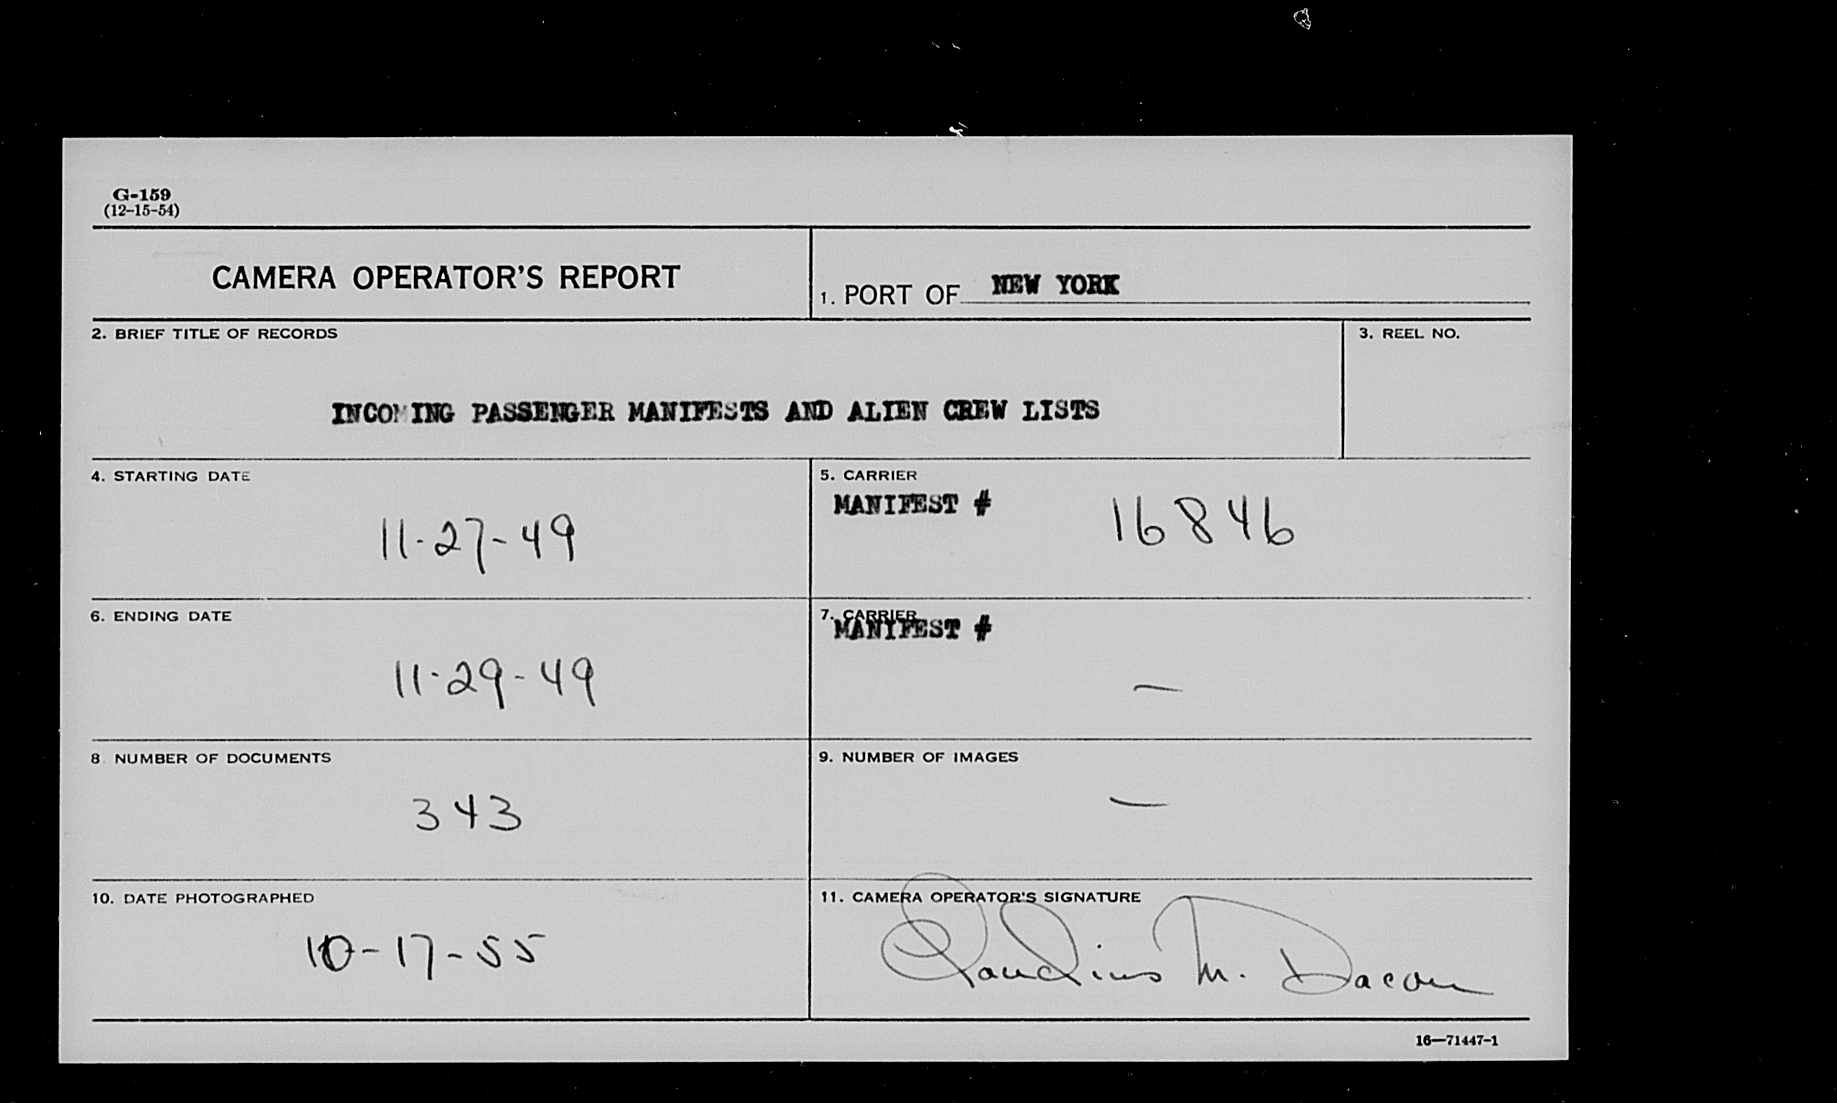 G-159
(12-15-54)
CAMERA OPERATOR'S REPORT
1. PORT OF NEW YORK
2. BRIEF TITLE OF RECORDS
3. REEL NO.
INCOMING PASSENGER MANIFESTS AND ALIEN CREW LISTS
4. STARTING DATE
11-27-49
5. CARRIER
MANIFEST # 16846
6. ENDING DATE
11-29-49
7. CARRIER
MANIFEST #
—
8 NUMBER OF DOCUMENTS
343
9. NUMBER OF IMAGES
—
10. DATE PHOTOGRAPHED
10-17-55
11. CAMERA OPERATOR'S SIGNATURE
Claudius M. Dacon
16—71447-1